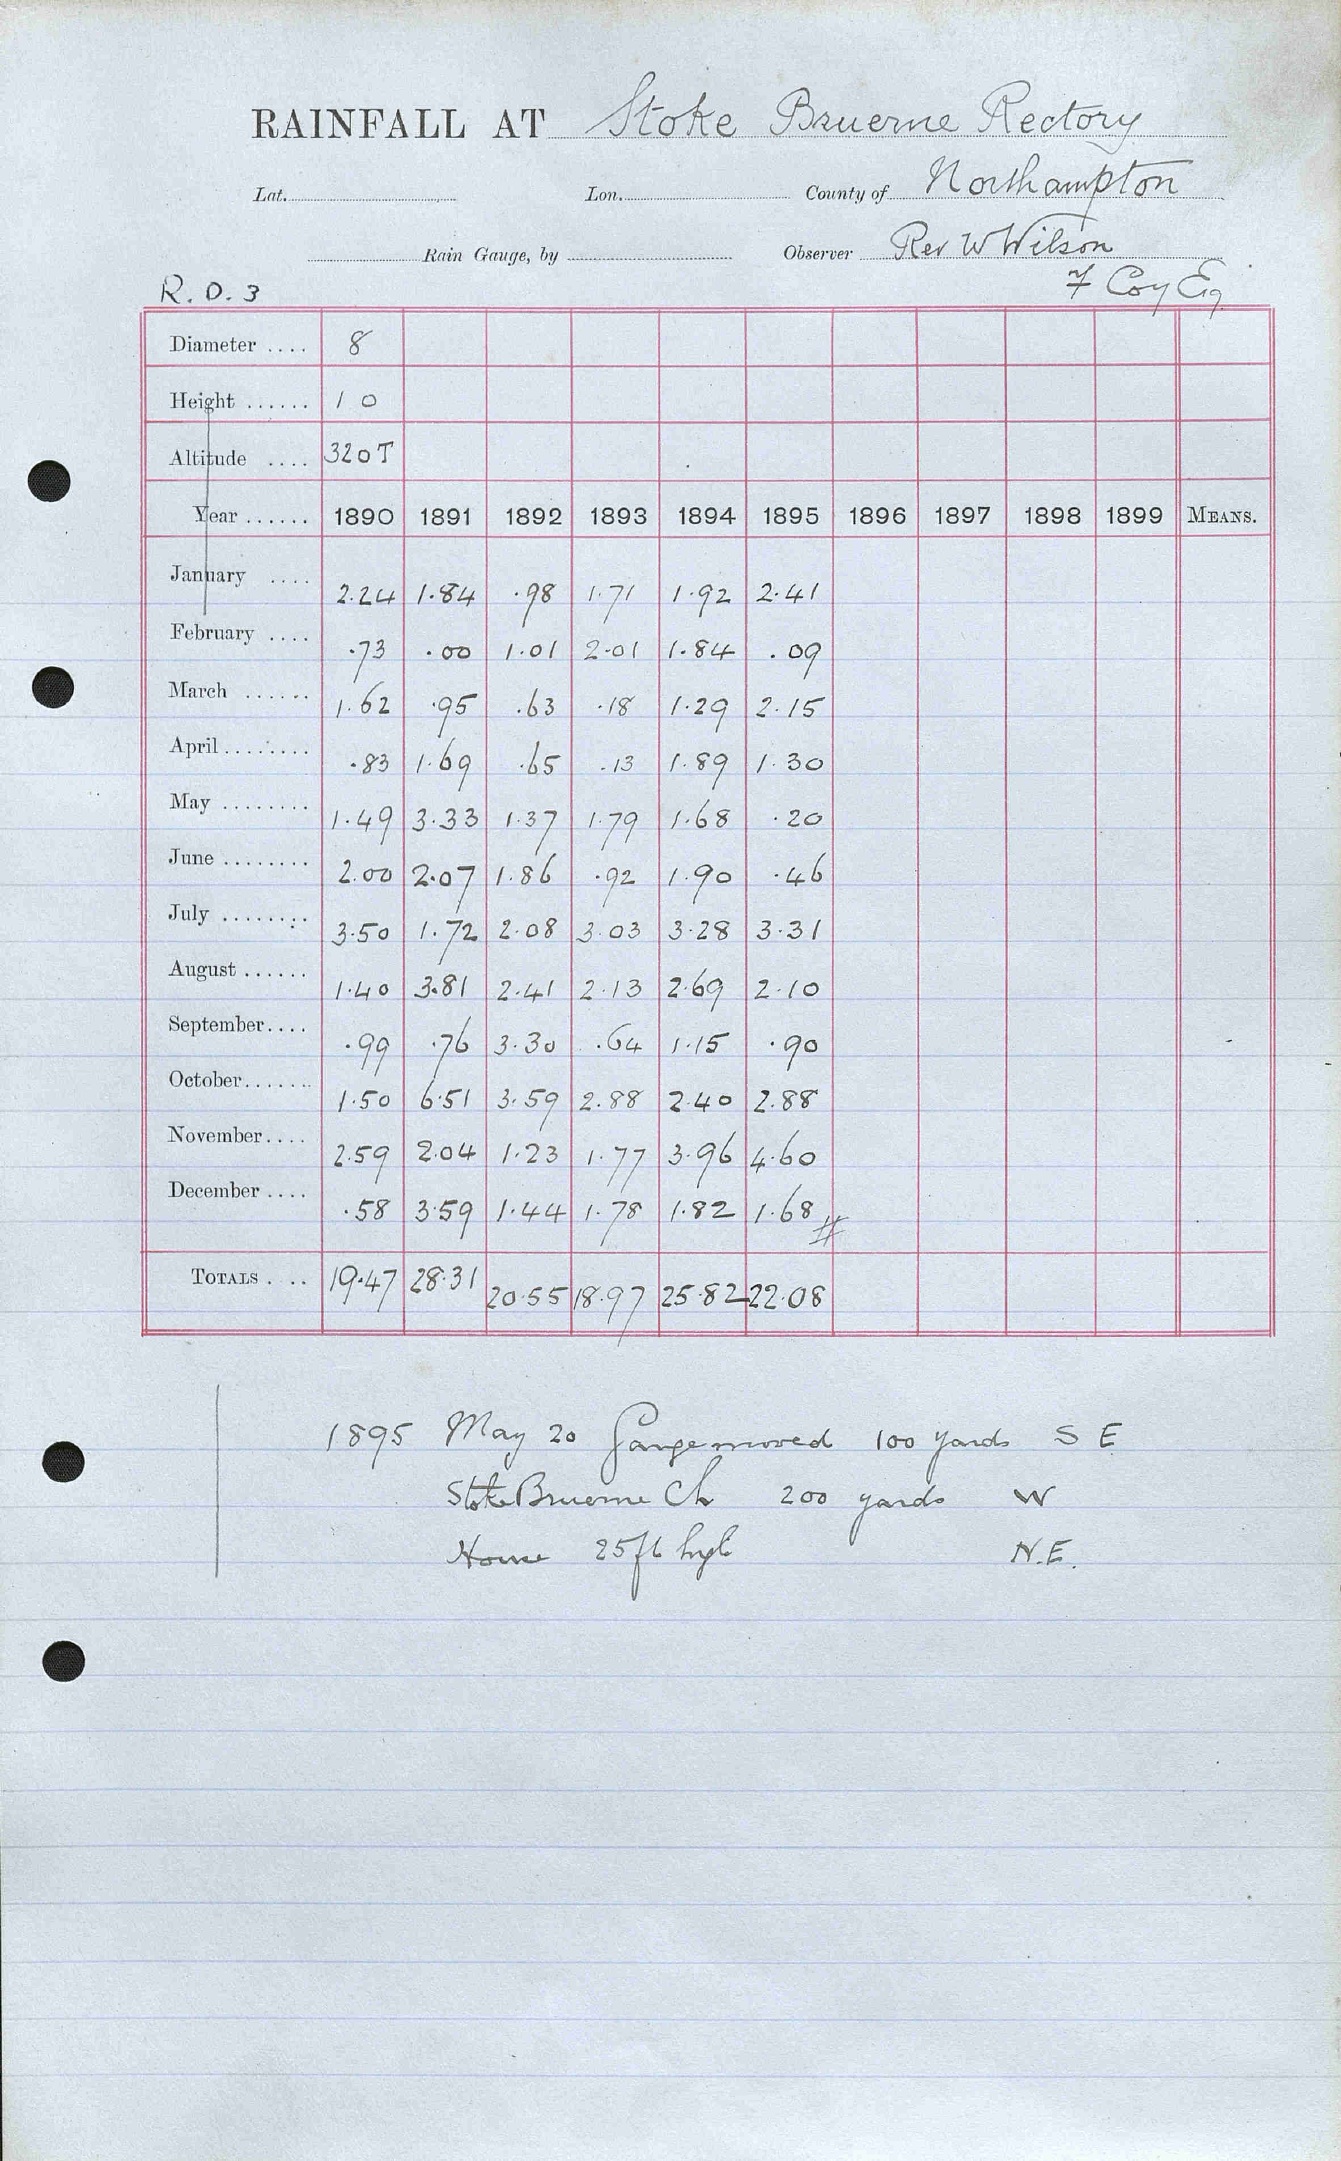 RAINFALL AT Stoke Bruerne Rectory
Lat. Lon. County of Northampton
Rain Gauge, by Observer Rev W Wilson
R.D.3 Coy Esq
Diameter .... 8
Height ...... 1 0
Altitude .... 320T
Year ...... 1890 1891 1892 1893 1894 1895 1896 1897 1898 1899 MEANS.
January .... 2.24 1.84 .98 1.71 1.92 2.41
February .... .73 .00 1.01 2.01 1.84 .09
March ...... 1.62 .95 .63 .18 1.29 2.15
April ........ .83 1.69 .65 .13 1.89 1.30
May ........ 1.49 3.33 1.37 1.79 1.68 .20
June ........ 2.00 2.07 1.86 .92 1.90 .46
July ........ 3.50 1.72 2.08 3.03 3.28 3.31
August ...... 1.40 3.81 2.41 2.13 2.69 2.10
September .... .99 .76 3.30 .64 1.15 .90
October ....... 1.50 6.51 3.59 2.88 2.40 2.88
November .... 2.59 2.04 1.23 1.77 3.96 4.60
December .... .58 3.59 1.44 1.78 1.82 1.68 #
TOTALS . .. 19.47 28.31 20.55 18.97 25.82 22.08
1895 May 20 Gauge moved 100 yards S E
Stoke Bruerne Ch 200 yards W
House 25ft high N.E.